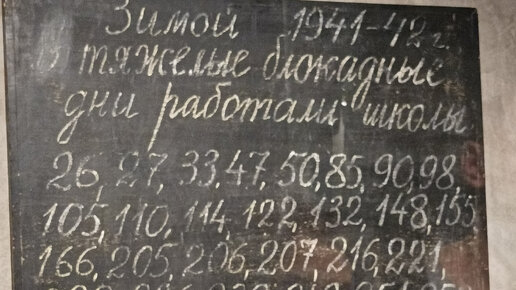 Зимой 1941-42 г.
В тяжелые блокадные
дни работали школы
26, 27, 33, 47, 50, 85, 90, 98,
105, 110, 114, 122, 132, 148, 155
166, 205, 206, 207, 216, 221,